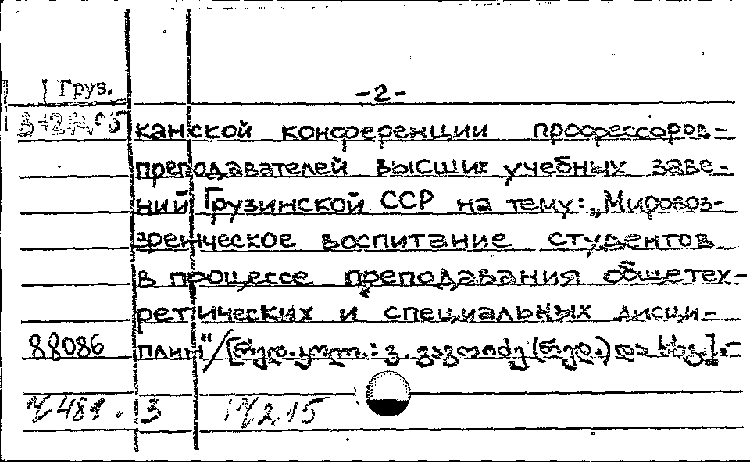 Груз.
-2-
канской конференции профессоров-
преподавателей высших учебных заве-
ний Грузинской ССР на тему: „Мировоз-
зренческое воспитание студентов
в процессе преподавания общетех-
ретических и специальных дисци-
88086 плин"/[რედ. კოლ.: ვ. (რედ.) და სხვ.].-